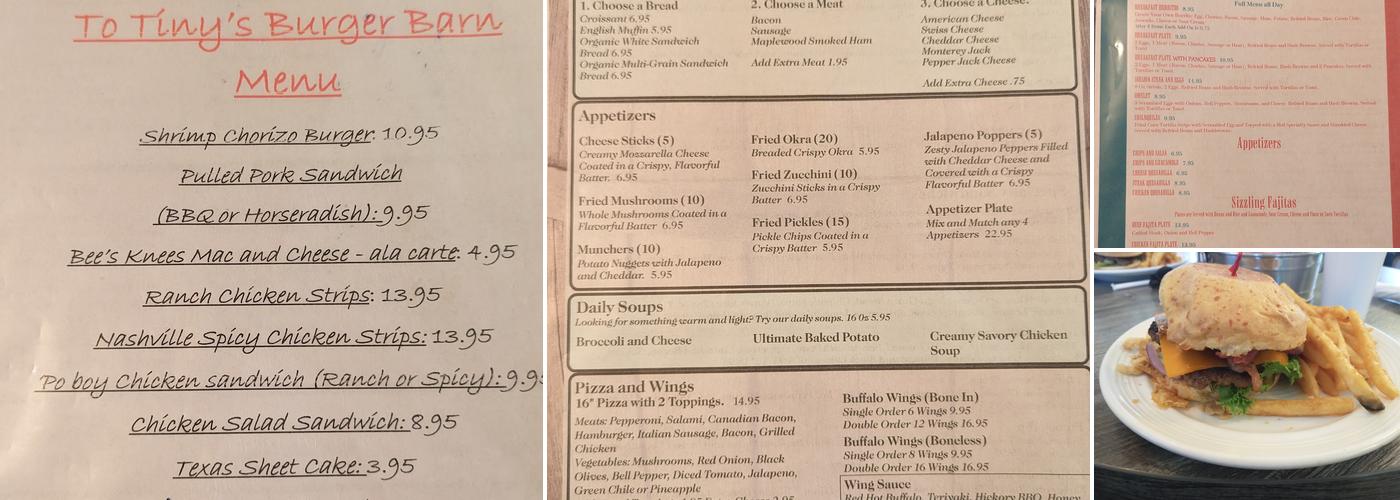 To Tiny's Burger Barn
Menu
Shrimp Chorizo Burger: 10.95
Pulled Pork Sandwich
(BBQ or Horseradish): 9.95
Bee's Knees Mac and Cheese - ala carte: 4.95
Ranch Chicken Strips: 13.95
Nashville Spicy Chicken Strips: 13.95
Po boy Chicken sandwich (Ranch or Spicy): 9.95
Chicken Salad Sandwich: 8.95
Texas Sheet Cake: 3.95
1. Choose a Bread
Croissant 6.95
English Muffin 5.95
Organic White Sandwich
Bread 6.95
Organic Multi-Grain Sandwich
Bread 6.95
2. Choose a Meat
Bacon
Sausage
Maplewood Smoked Ham
Add Extra Meat 1.95
3. Choose a Cheese.
American Cheese
Swiss Cheese
Cheddar Cheese
Monterey Jack
Pepper Jack Cheese
Add Extra Cheese .75
Appetizers
Cheese Sticks (5)
Creamy Mozzarella Cheese
Coated in a Crispy, Flavorful
Batter. 6.95
Fried Mushrooms (10)
Whole Mushrooms Coated in a
Flavorful Batter 6.95
Munchers (10)
Potato Nuggets with Jalapeno
and Cheddar. 5.95
Fried Okra (20)
Breaded Crispy Okra 5.95
Fried Zucchini (10)
Zucchini Sticks in a Crispy
Batter 6.95
Fried Pickles (15)
Pickle Chips Coated in a
Crispy Batter 5.95
Jalapeno Poppers (5)
Zesty Jalapeno Peppers Filled
with Cheddar Cheese and
Covered with a Crispy
Flavorful Batter 6.95
Appetizer Plate
Mix and Match any 4
Appetizers 22.95
Daily Soups
Looking for something warm and light? Try our daily soups. 16 0z 5.95
Broccoli and Cheese
Ultimate Baked Potato
Creamy Savory Chicken
Soup
Pizza and Wings
16" Pizza with 2 Toppings. 14.95
Meats: Pepperoni, Salami, Canadian Bacon,
Hamburger, Italian Sausage, Bacon, Grilled
Chicken
Vegetables: Mushrooms, Red Onion, Black
Olives, Bell Pepper, Diced Tomato, Jalapeno,
Green Chile or Pineapple
Buffalo Wings (Bone In)
Single Order 6 Wings 9.95
Double Order 12 Wings 16.95
Buffalo Wings (Boneless)
Single Order 8 Wings 9.95
Double Order 16 Wings 16.95
Wing Sauce
Red Hot Buffalo, Teriyaki, Hickory BBQ, Honey
Full Menu all Day
BREAKFAST BURRITO 8.95
BREAKFAST PLATE 9.95
BREAKFAST PLATE WITH PANCAKES 10.95
OMELET 8.95
CHILAQUILES 9.95
Appetizers
CHIPS AND SALSA 6.95
CHIPS AND GUACAMOLE 7.95
CHEESE QUESADILLA 6.95
STEAK QUESADILLA 8.95
CHICKEN QUESADILLA 8.95
Sizzling Fajitas
BEEF FAJITA PLATE 13.95
Grilled Steak, Onion and Bell Pepper
CHICKEN FAJITA PLATE 13.95